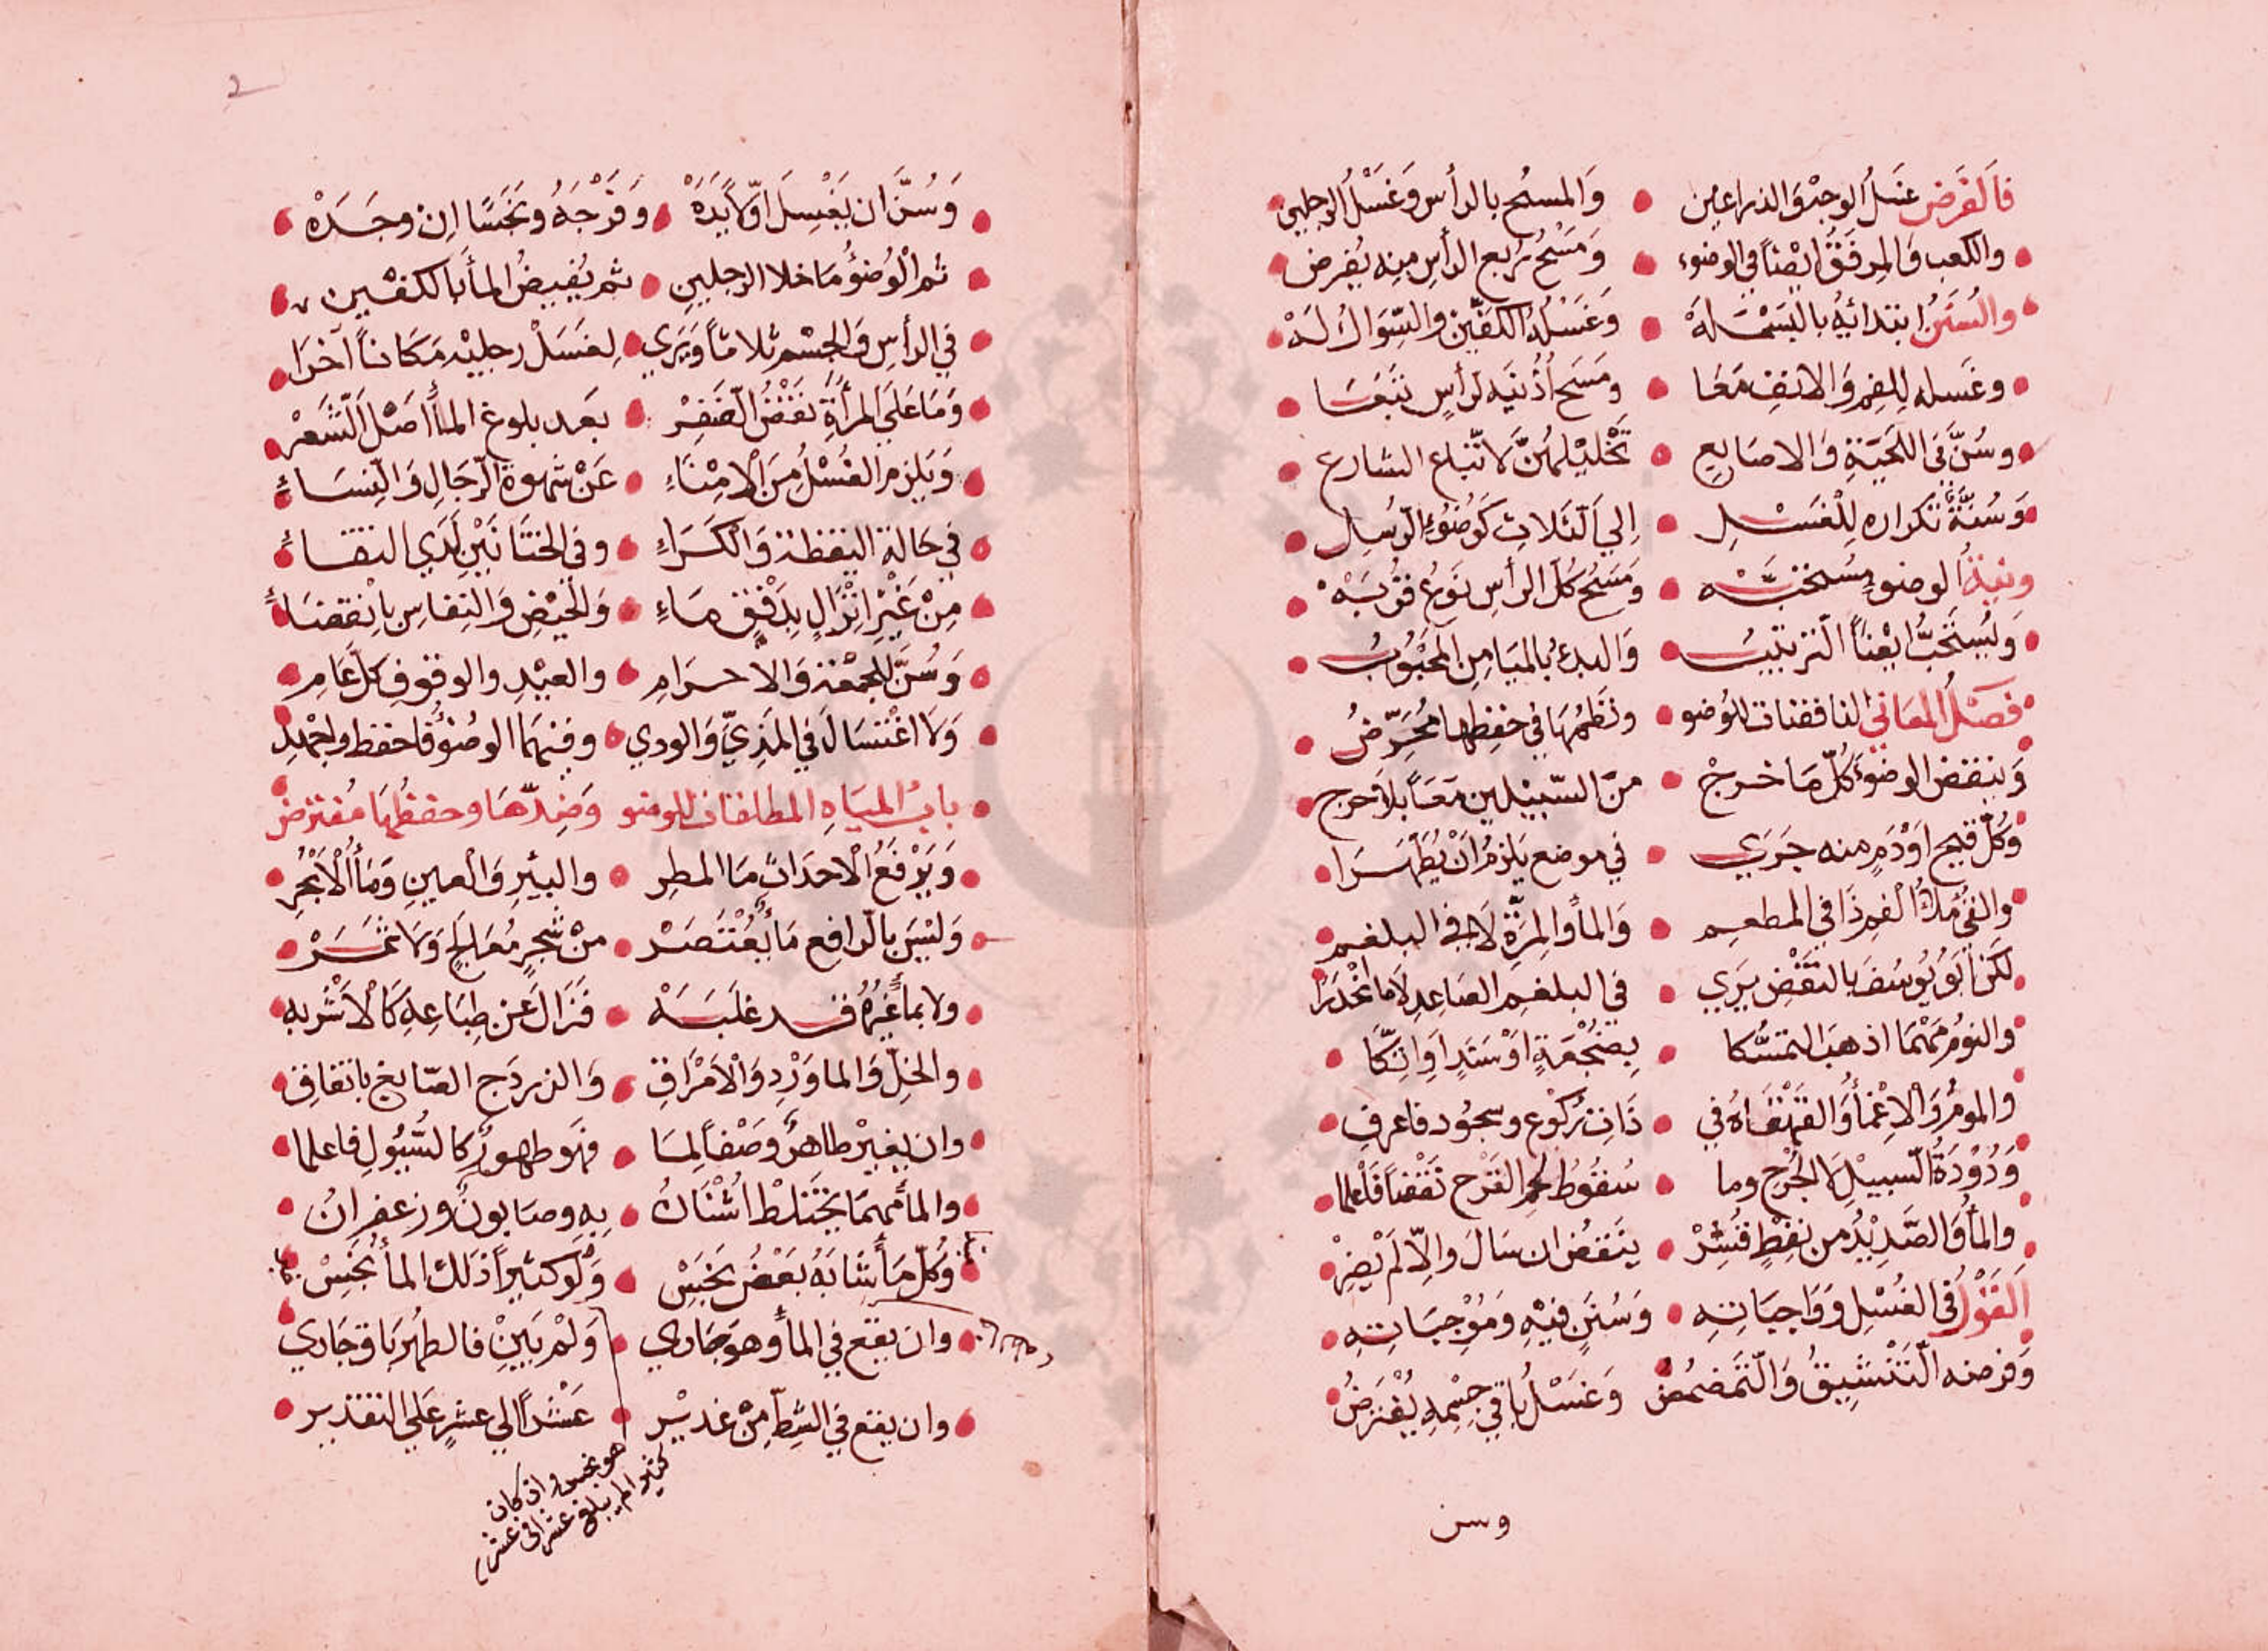 فالفرض غسل الوجه والذراعين • والمسح بالرأس وغسل الرجلين
والكعب والمرفق ايضا في الوضوء • ومسح ربع الرأس منه يفرض
والسنن ابتدائه بالبسملة • وغسله الكفين والسواك له
وغسله للفم والانف معا • ومسح أذنيه لرأس تبعا
وسن في اللحية والاصابع • تخليلهن لاتباع الشارع
وسنة تكراره للغسل • الي الثلاث كوضوء الرسل
ونية الوضوء مستحبه • ومسح كل الرأس نوع قربه
ويستحب ايضا الترتيب • والبدء بالميامن المحبوب
فصل المعاني الناقضات للوضو • ونظمها في حفظها محرض
وينقض الوضوء كل ما خرج • من السبيلين معا بلا حرج
وكل قيح او دم منه جري • في موضع يلزم ان يطهرا
والقئ ملأ الفم ذا في المطعم • والمأ والمرة لا في البلغم
لكن ابو يوسف بالنقض يري • في البلغم الصاعد لا ما انحدرا
والنوم مهما اذهب التمسكا • بضجعة او سند او اتكا
والموم والاغمأ والقهقاه في • ذات ركوع وسجود فاعرف
ودودة السبيل لا الجرح وما • سقوط لحم القرح نقضا فاعلما
والمأ والصديد من نفط قشر • ينقض ان سال والا لم يضر
القول في الغسل وواجباته • وسنن فيه وموجباته
وفرضه التنشيق والتمضمض وغسل باقي جسمه يفترض
وسن
2
وسن ان يغسل اولا يده • وفرجه ونجسا ان وجده
ثم الوضؤ ما خلا الرجلين • ثم يفيض المأ بالكفين
في الرأس والجسم ثلاثا ويري • لغسل رجليه مكانا آخرا
وما علي المرأة نقض الضفر • بعد بلوغ المأ اصل الشعر
ويلزم الغسل من الامناء • عن شهوة الرجال والنساء
في حالة اليقظة والكراء • وفي الختانين لدي التقاء
من غير انزال بدفق ماء • والحيض والنفاس بانقضاء
وسن للجمعة والاحرام • والعيد والوقوف كل عام
ولا اغتسال في المذي والودي • وفيهما الوضؤ فاحفظ واجهد
باب المياه المطلقات للوضو وضدها وحفظها مفترض
ويرفع الاحداث ما المطر • والبئر والعين ومأ الابحر
وليس بالرافع مأ يعتصر • من شجر معالج ولا ثمر
ولا بمأ غيره قد غلبه • فزال عن طباعه كالاشربه
والخل والما ورد والامراق • والزردج الصابغ باتفاق
وان يغير طاهر وصفا لما • فهو طهور كالسيول فاعلما
والمأ مهما يختلط اشنان • به وصابون وزعفران
وكل مأ شابه بعض نجس • ولو كثيرا ذلك المأ نجس
وان يقع في المأ وهو جاري • ولم يبين فالطهر باق جاري
وان يقع في الشط من غدير • عشرا الي عشر علي التقدير
هو نجس وان كان
كثيرا لم يبلغ عشرا في عشر